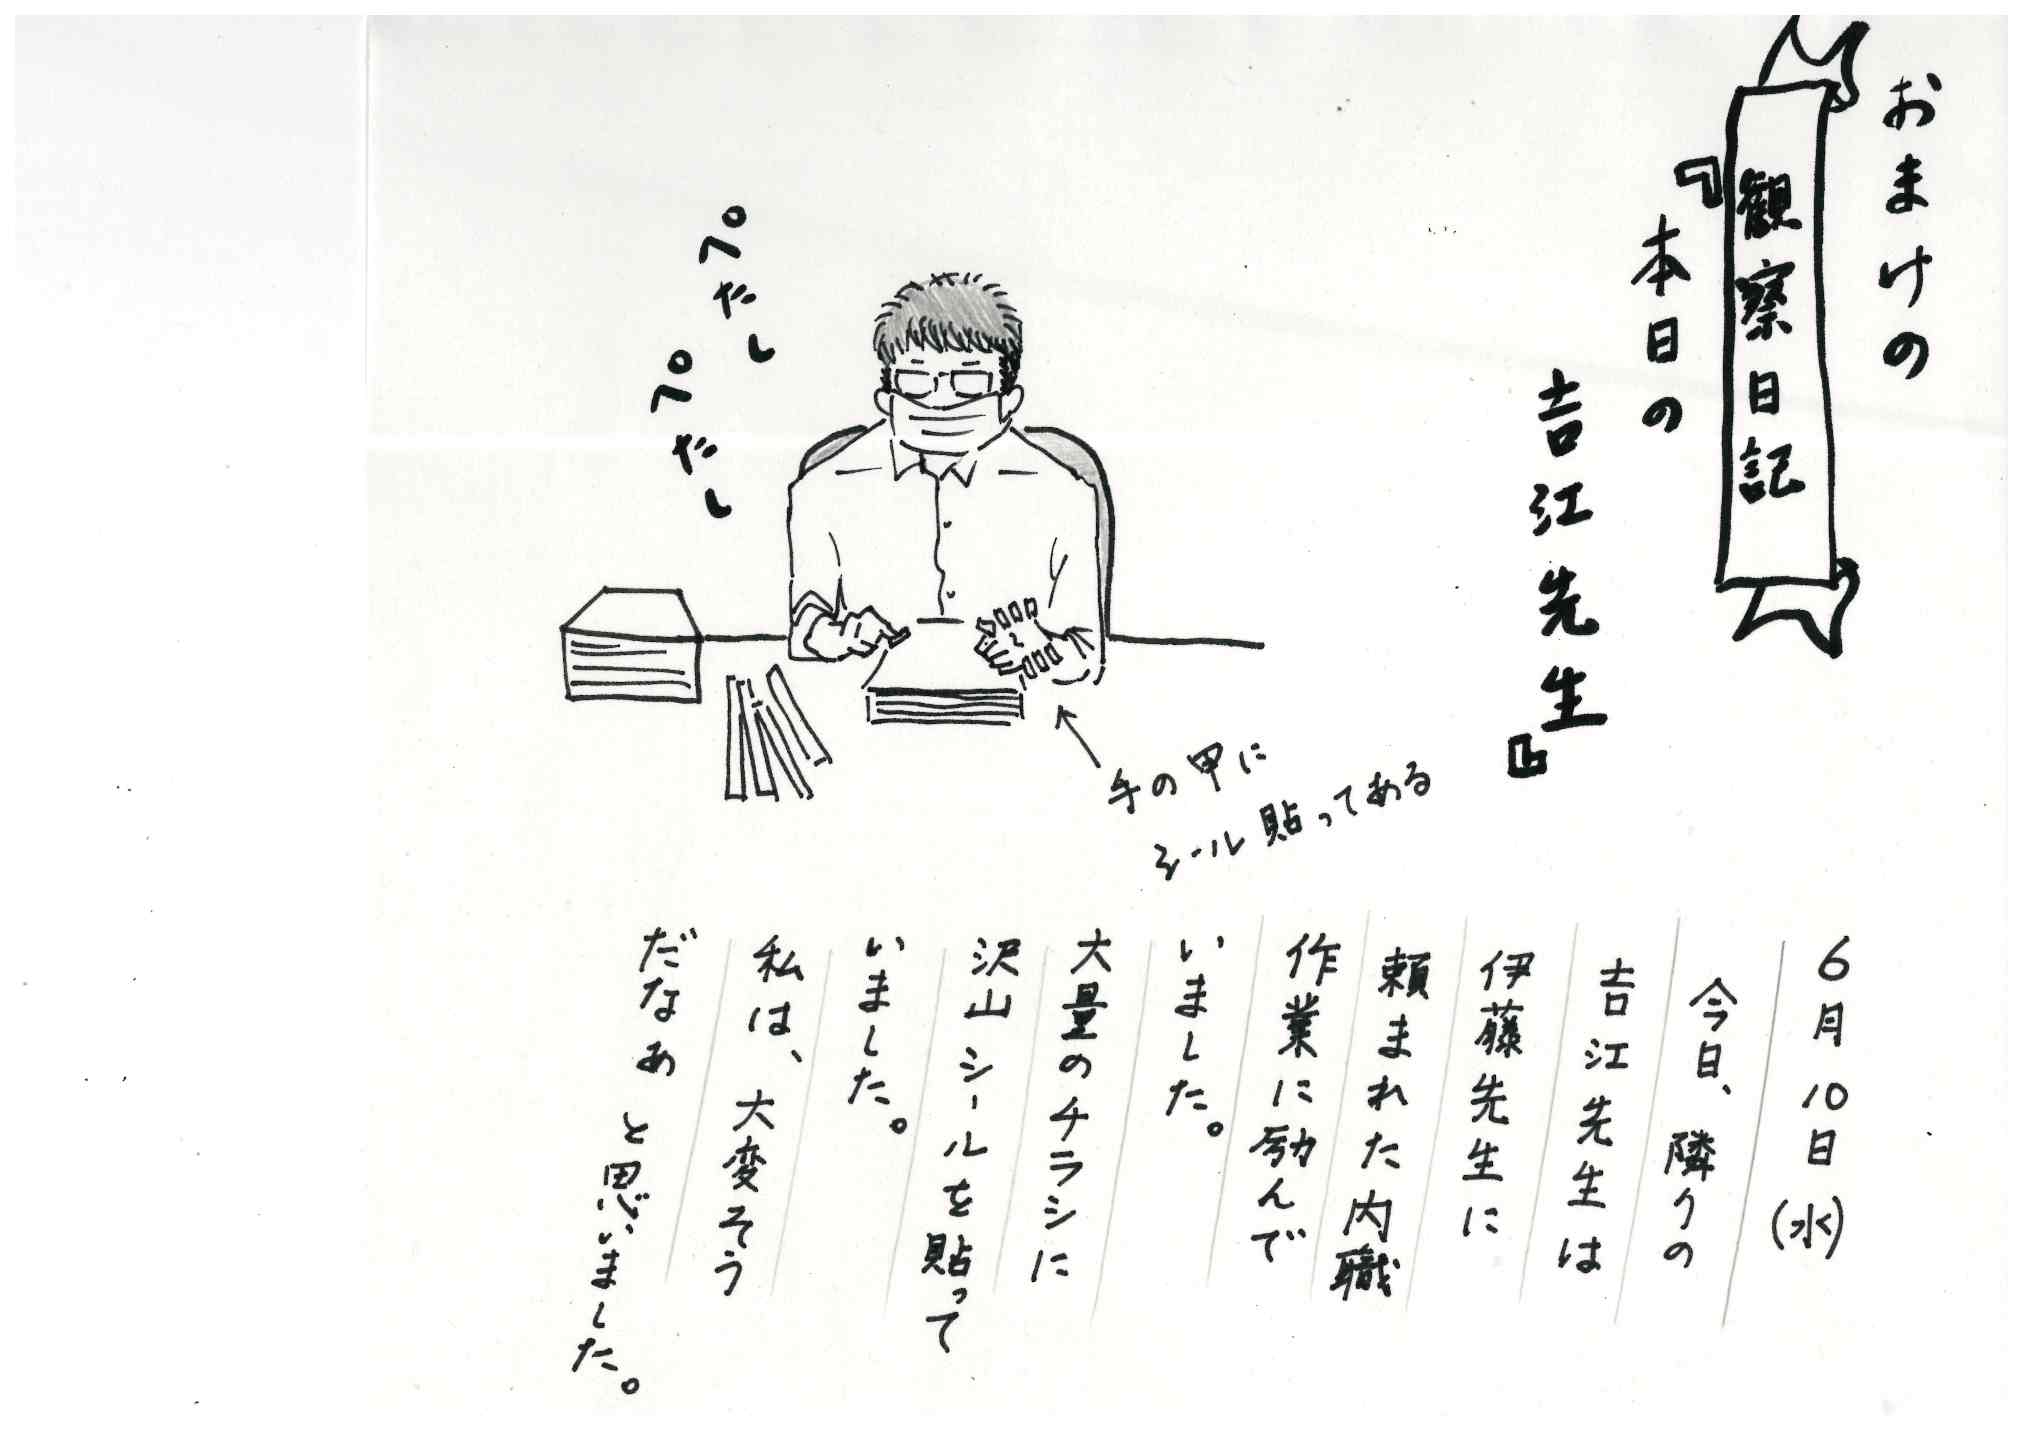 おまけの
観察日記
『本日の
吉江先生』
手の甲に
シール貼ってある
6月10日(水)
今日、隣りの
吉江先生は
伊藤先生に
頼まれた内職
作業に励んで
いました。
大量のチラシに
沢山シールを貼って
いました。
私は、大変そう
だなぁと思いました。